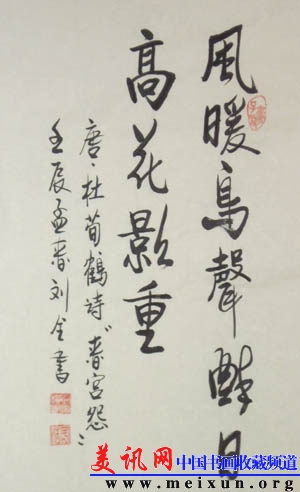 風暖鳥聲碎日
高花影重
唐·杜荀鶴詩"春宮怨"
壬辰孟春刘書
美讯网 中国书画收藏频道
www.meixun.org